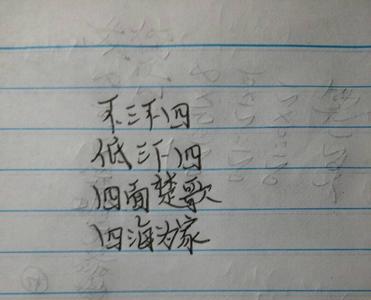 不三不四
低三下四
四面楚歌
四海为家